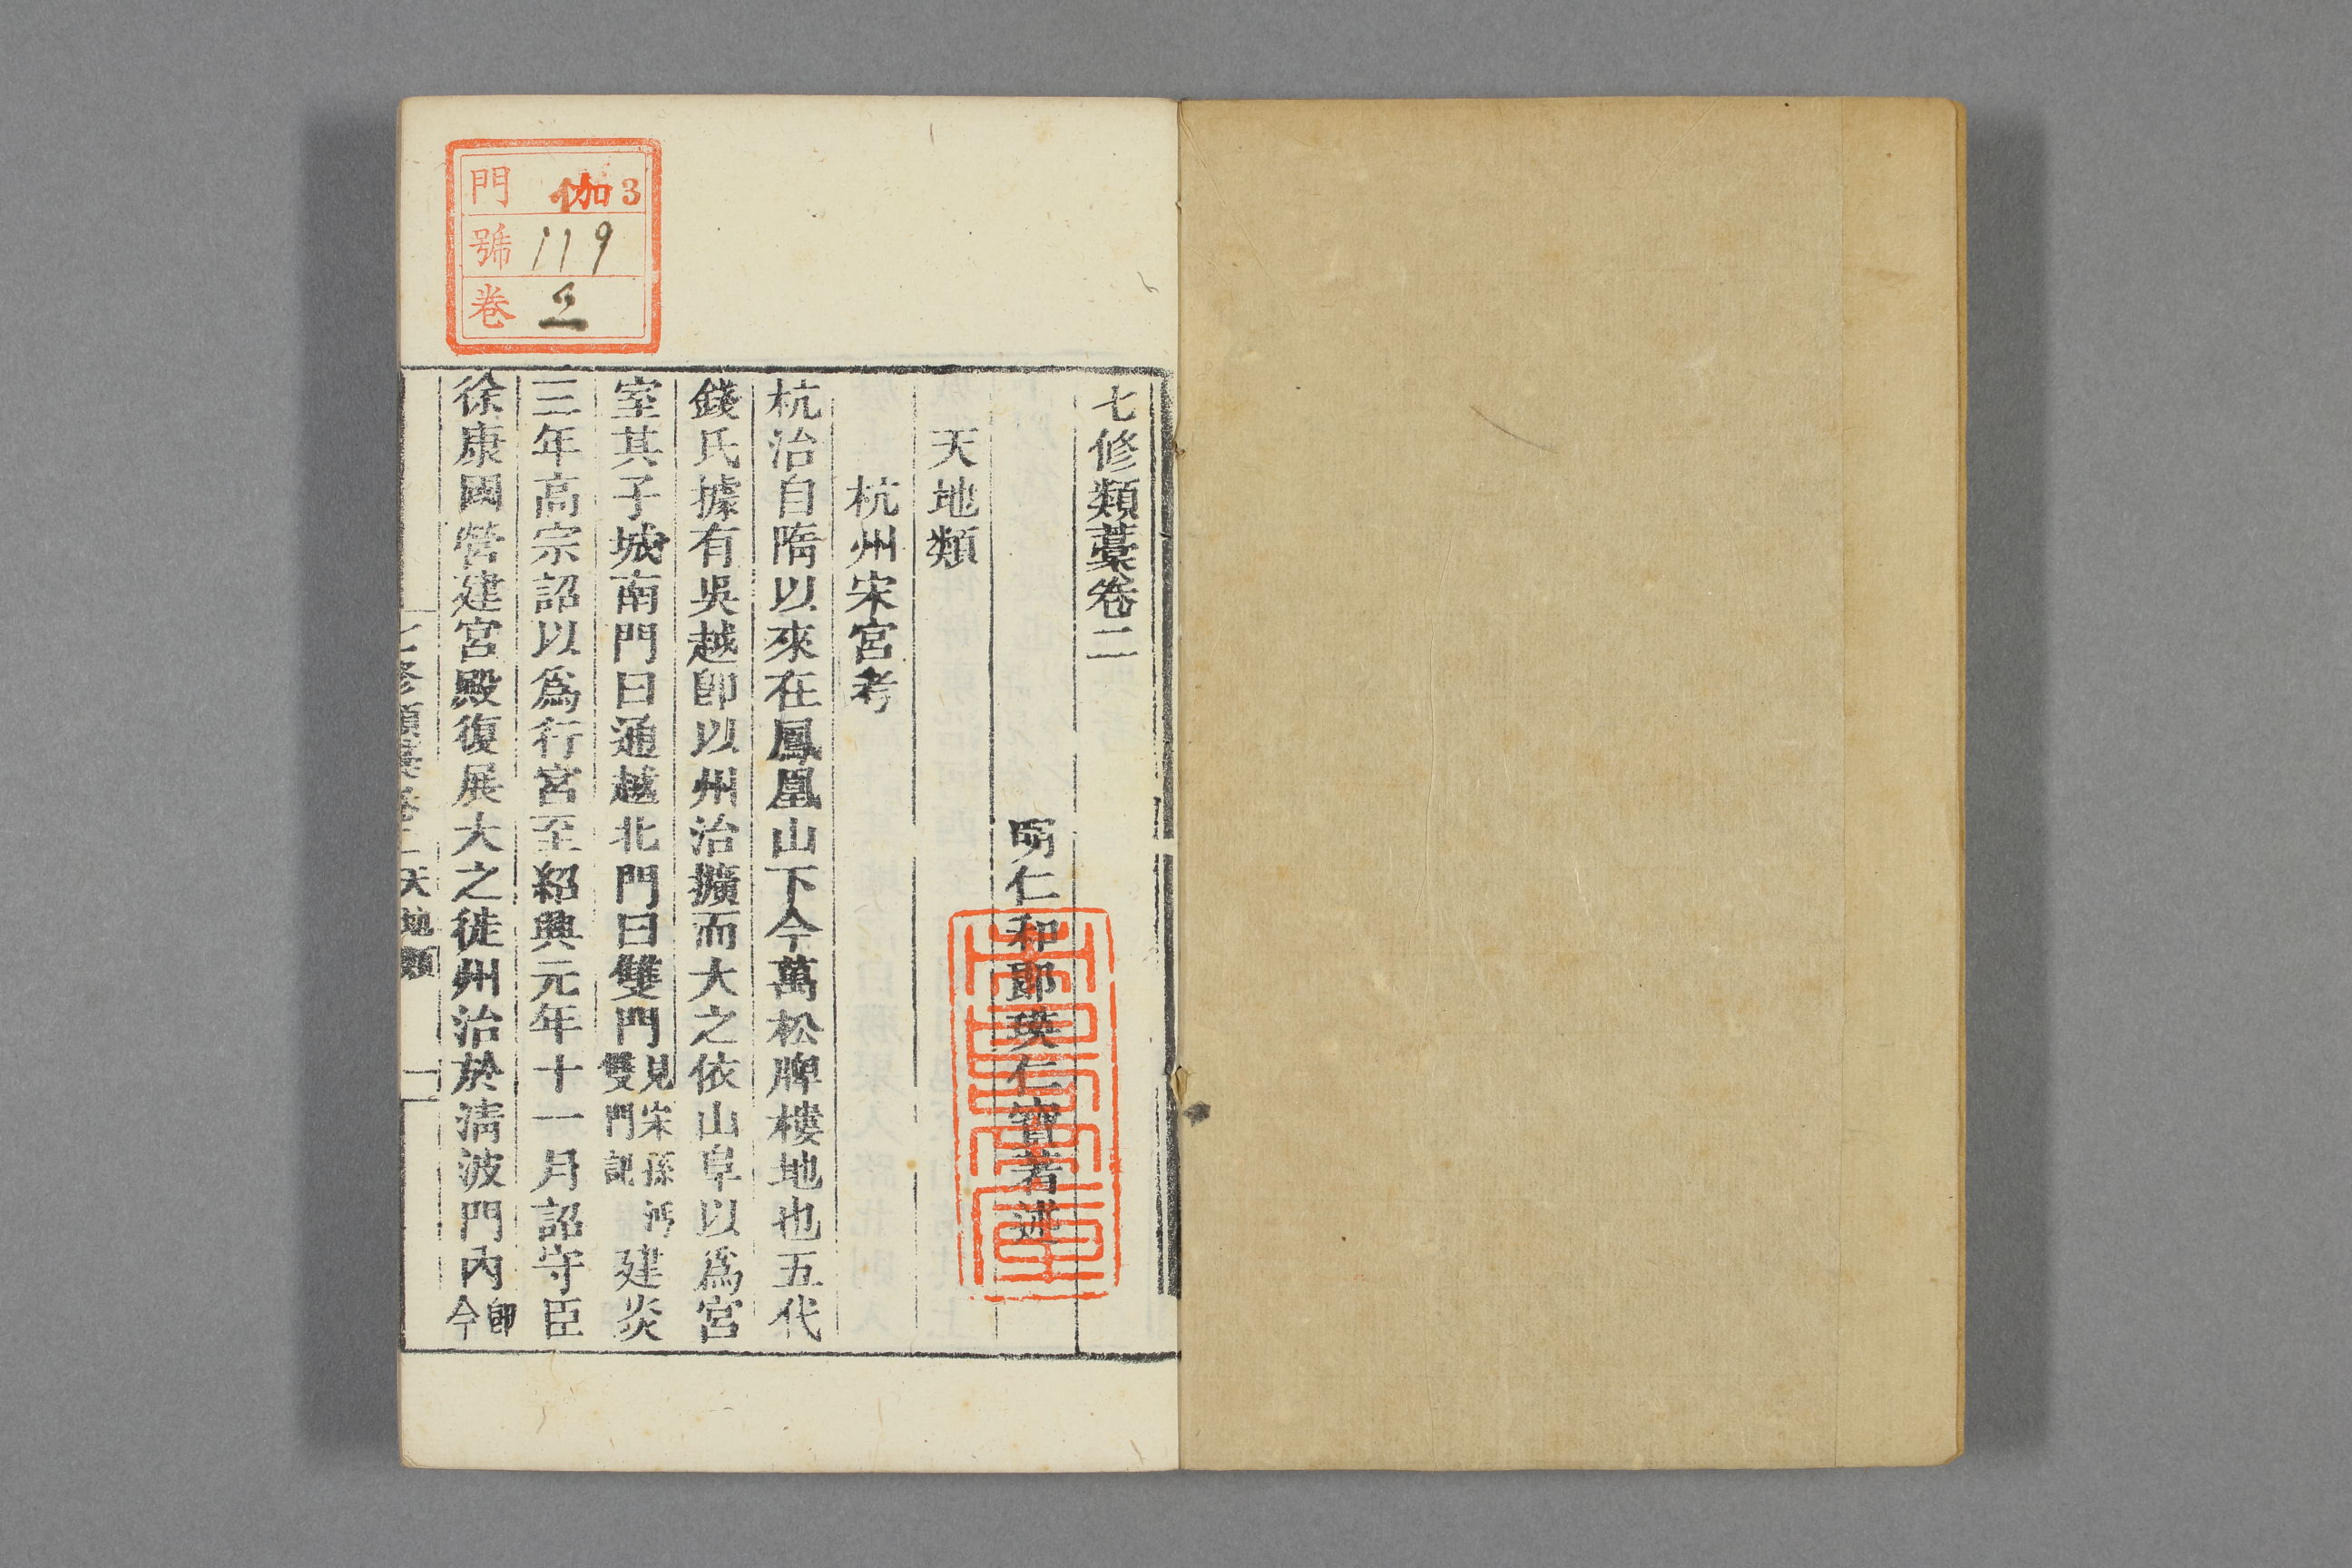 七修類藁卷二
明仁和郎瑛仁寶著述
天地類
杭州宋宮考
杭治自隋以來在鳳凰山下今萬松牌樓地也五代
錢氏據有吳越卽以州治擴而大之依山阜以爲宮
室其子城南門曰通越北門曰雙門見宋孫沔雙門記建炎
三年高宗詔以爲行宮至紹興元年十一月詔守臣
徐康國營建宮殿復展大之徙州治於淸波門內卽今
七修類藁卷二 天地類 一
門 伽3
號 119
卷